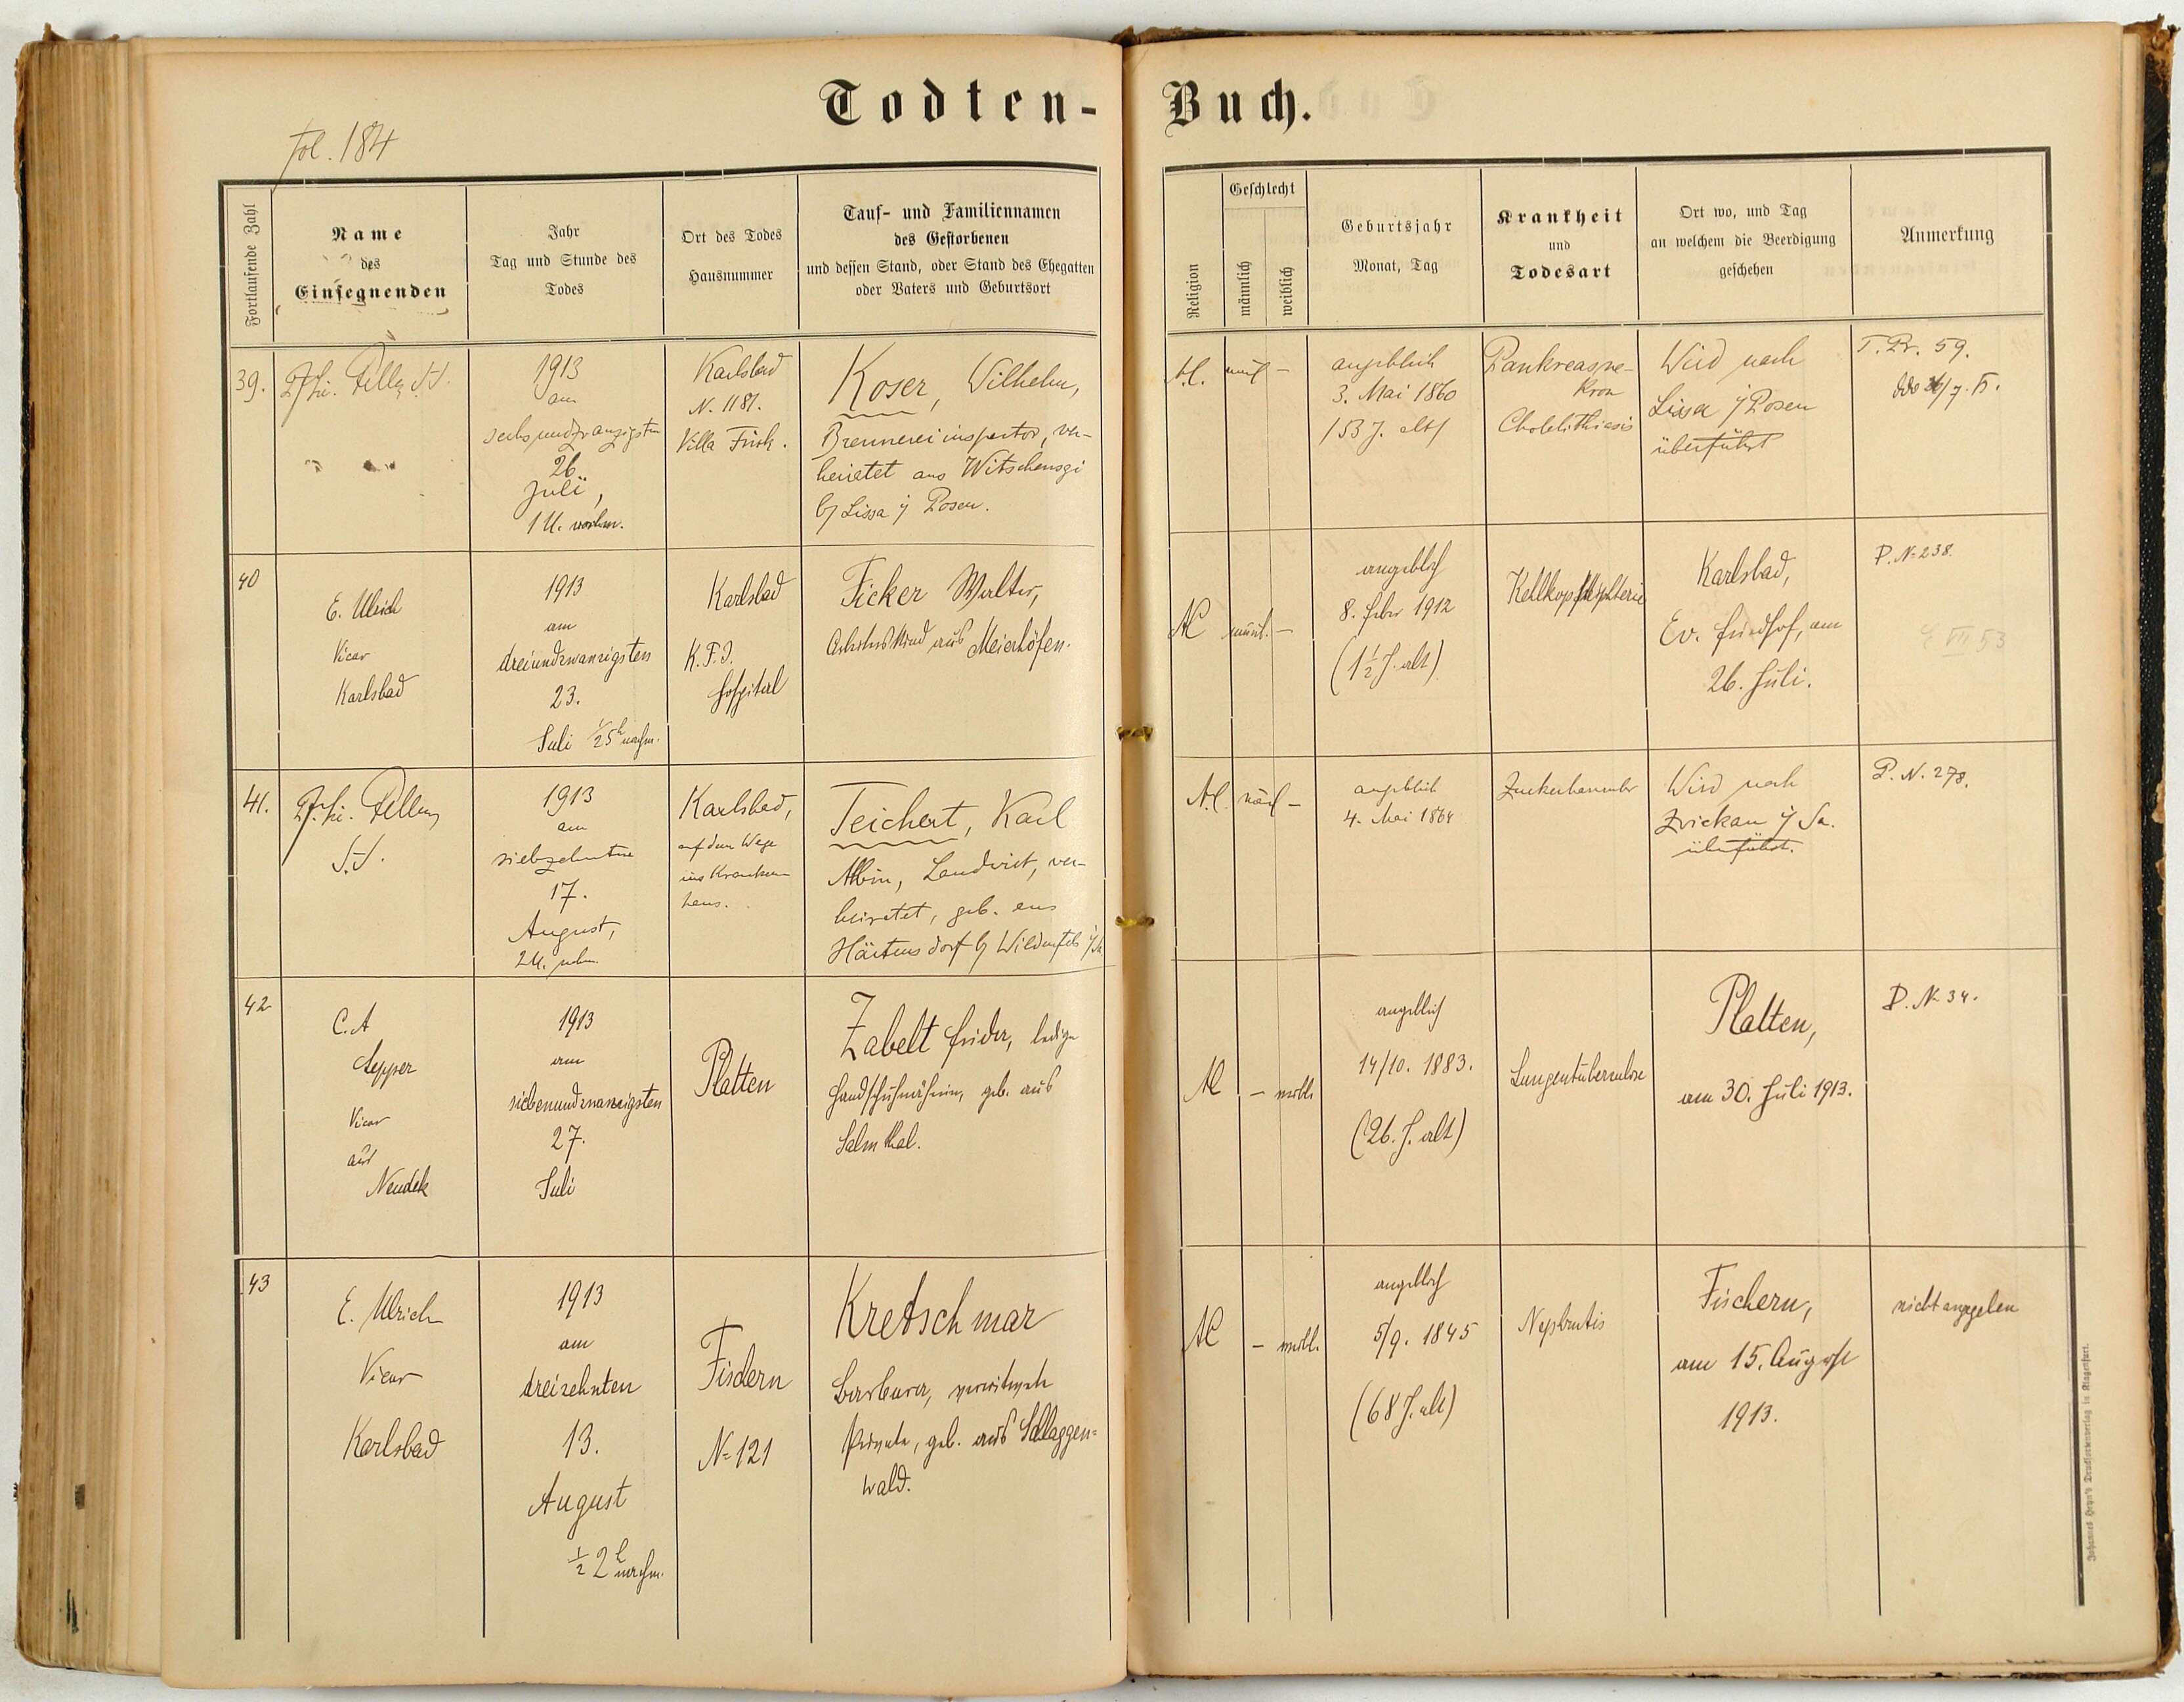 Todten-Buch.
fol. 184
Fortlaufende Zahl
Name
des
Einsegnenden
Jahr
Tag und Stunde des
Todes
Ort des Todes
Hausnummer
Tauf- und Familiennamen
des Gestorbenen
und dessen Stand, oder Stand des Ehegatten
oder Vaters und Geburtsort
Religion
Geschlecht
männlich
weiblich
Geburtsjahr
Monat, Tag
Krankheit
und
Todesart
Ort wo, und Tag
an welchem die Beerdigung
geschehen
Anmerkung
39.
1913
am
sechsundzwanzigsten
26.
Juli,
1 U. vorm.
Karlsbad
N. 1181.
Villa
Koser, Wilhelm,
Brennereiinspektor, ver-
heiratet aus
b/ Lissa i/ Posen.
A.C.
angeblich
3. Mai 1860
/53 J. alt/
Pankreasne-
krose
Cholelithiasis
Wird nach
Lissa i/ Posen
überführt
59.
40
E. Ulrich
Vicar
Karlsbad
1913
am
dreiundzwanzigsten
23.
Juli 1/2 5h nachm.
Karlsbad
K. F. J.
Hospital
Ficker Walter,
Arbeiterskind aus Meierhöfen.
AC
männl. –
angeblich
8. Feber 1912
(1 1/2 J. alt)
Karlsbad,
Ev. Friedhof, am
26. Juli.
P. N= 238.
41.
1913
am
siebzehnten
17.
August,
2 U. nchm.
Karlsbad,
auf dem Wege
ins Kranken-
haus.
Teichert, Karl
Albin, Landwirt, ver-
heiratet, geb. aus
Härtensdorf b/ Wildenfels i/Sa
A.C.
angeblich
4. Mai 1864
Wird nach
Zwickau i/ Sa.
überführt.
P. N. 278.
42
C. A
Vicar
aus
Neudek
1913
am
siebenundzwanzigsten
27.
Juli
Platten
Zabelt Frieda, ledige
Handschuhnäherin, geb. aus
Salmthal.
AC
– weibl.
angeblich
14/10. 1883.
(26. J. alt)
Lungentuberculose
Platten,
am 30. Juli 1913.
P. N= 34.
43
E. Ulrich
Vicar
Karlsbad
1913
am
dreizehnten
13.
August
1/2 2h nachm.
Fischern
N= 121
Kretschmar
Barbara, verwitwete
Private, geb. aus Schlaggen=
wald.
AC
– weibl.
angeblich
5/9. 1845
(68 J. alt)
Fischern,
am 15. August
1913.
nicht angegeben
Johannes Heyn's Drucksortenverlag in Klagenfurt.